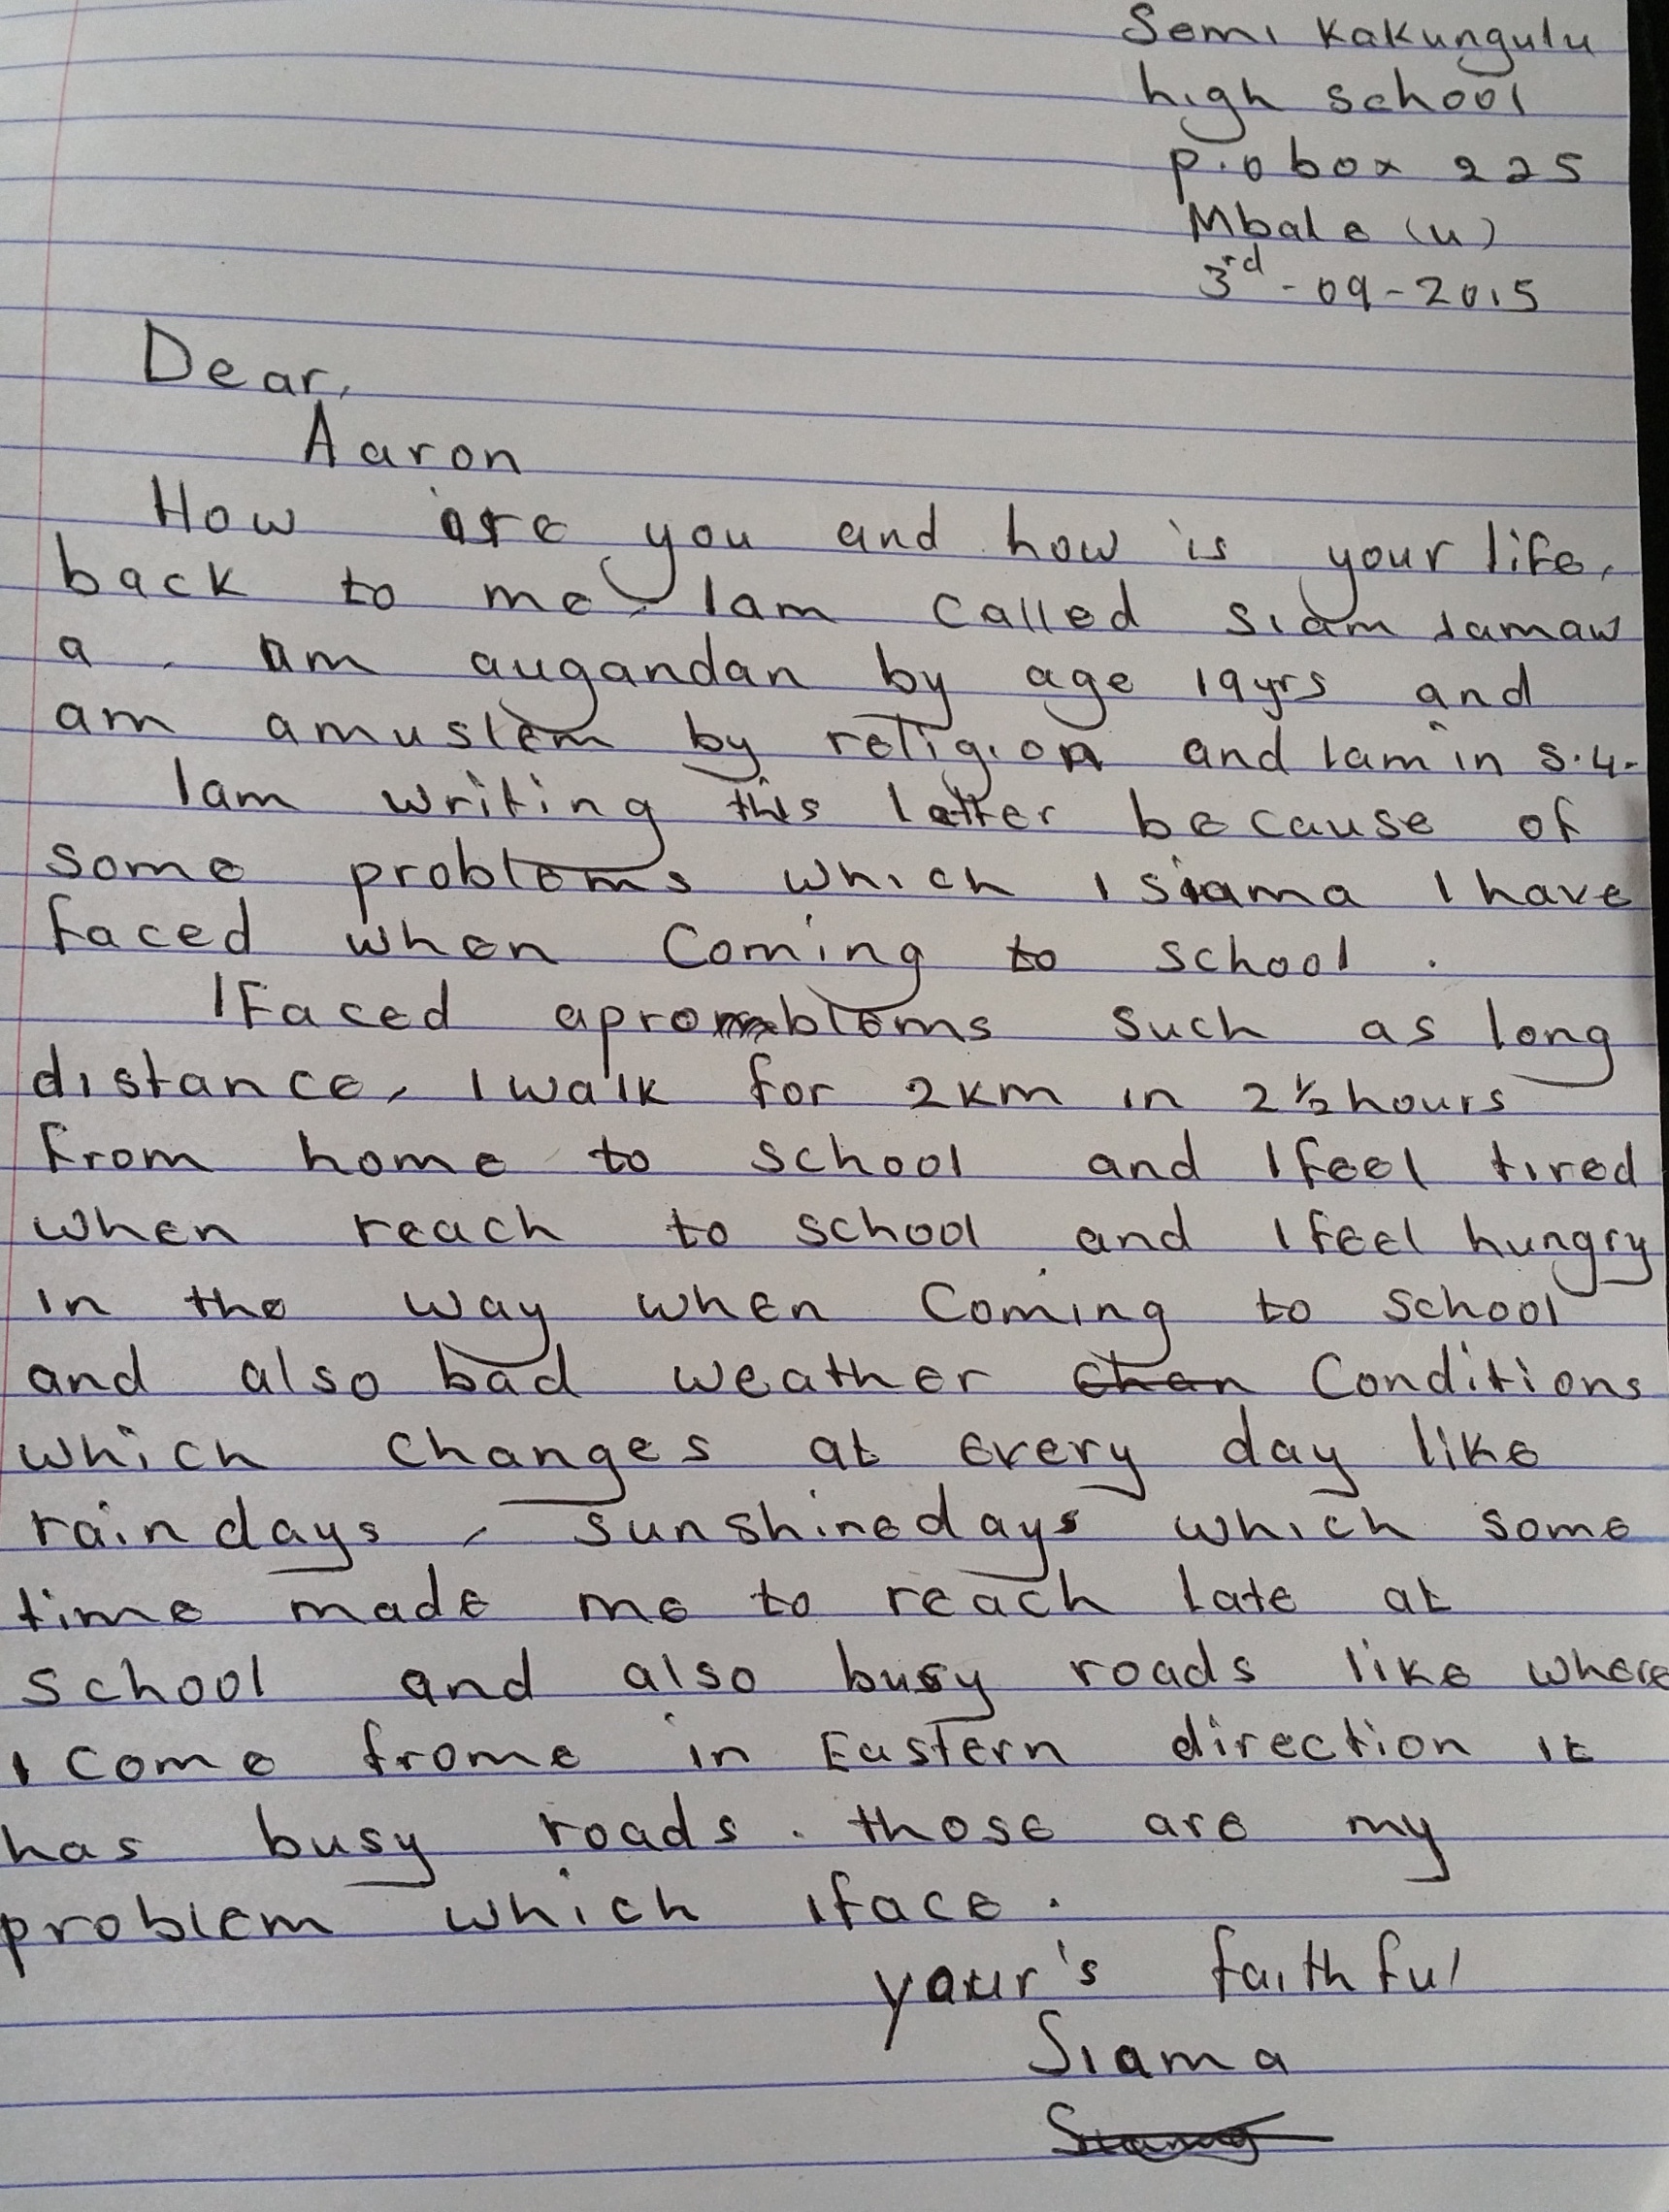 Semi Kakungulu
high school
p.o box 225
Mbale (u)
3rd-09-2015
Dear,
Aaron
How are you and how is your life,
back to me, Iam called siam
a. am augandan by age 19yrs and
am amuslem by religion and Iam in s.4.
Iam writing this letter because of
some problems which I siama I have
faced when Coming to school.
IFaced aproblems such as long
distance, I walk for 2km in 2½ hours
From home to school and I feel tired
when reach to school and I feel hungry
in the way when Coming to school
and also bad weather chan Conditions
which changes at every day like
rain days, sunshine days which some
time made me to reach late at
school and also busy roads like where
I come frome in Eastern direction it
has busy roads. those are my
problem which Iface.
your's faithful
Siama